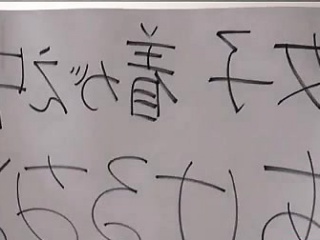 女子着がえ中
あけるな